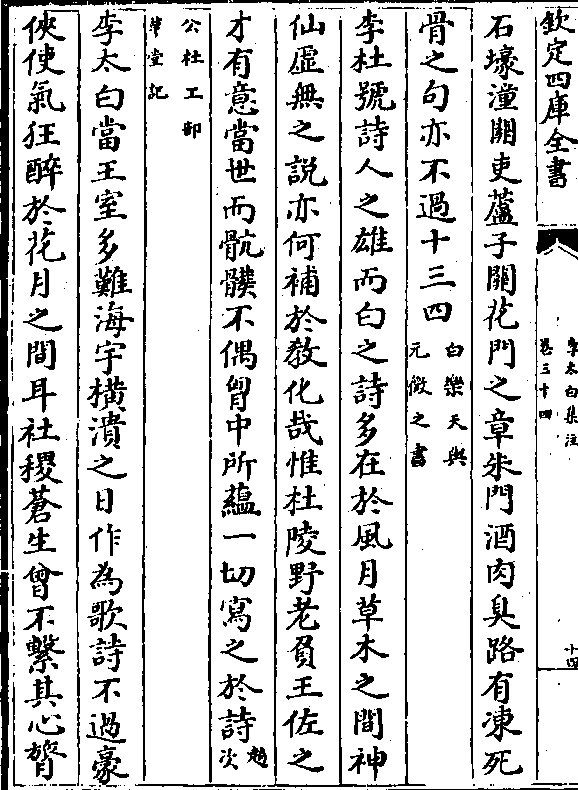 欽定四庫全書
李太白集注
卷三十四
十四
石壕潼關吏蘆子關花門之章朱門酒肉臭路有凍死
骨之句亦不過十三四
白樂天與
元微之書
李杜號詩人之雄而白之詩多在於風月草木之間神
仙虛無之說亦何補於教化哉惟杜陵野老負王佐之
才有意當世而骯髒不偶胷中所蘊一切寫之於詩
趙次
公杜工部
草堂記
李太白當王室多難海宇橫潰之日作為歌詩不過豪
俠使氣狂醉於花月之間耳社稷蒼生曾不繫其心膂